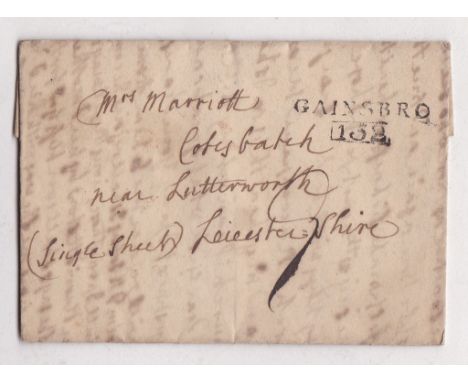 Mrs Marriott
GAINSBRO
152
Cotesbatch
near Lutterworth
(Single Sheet) Leicester Shire